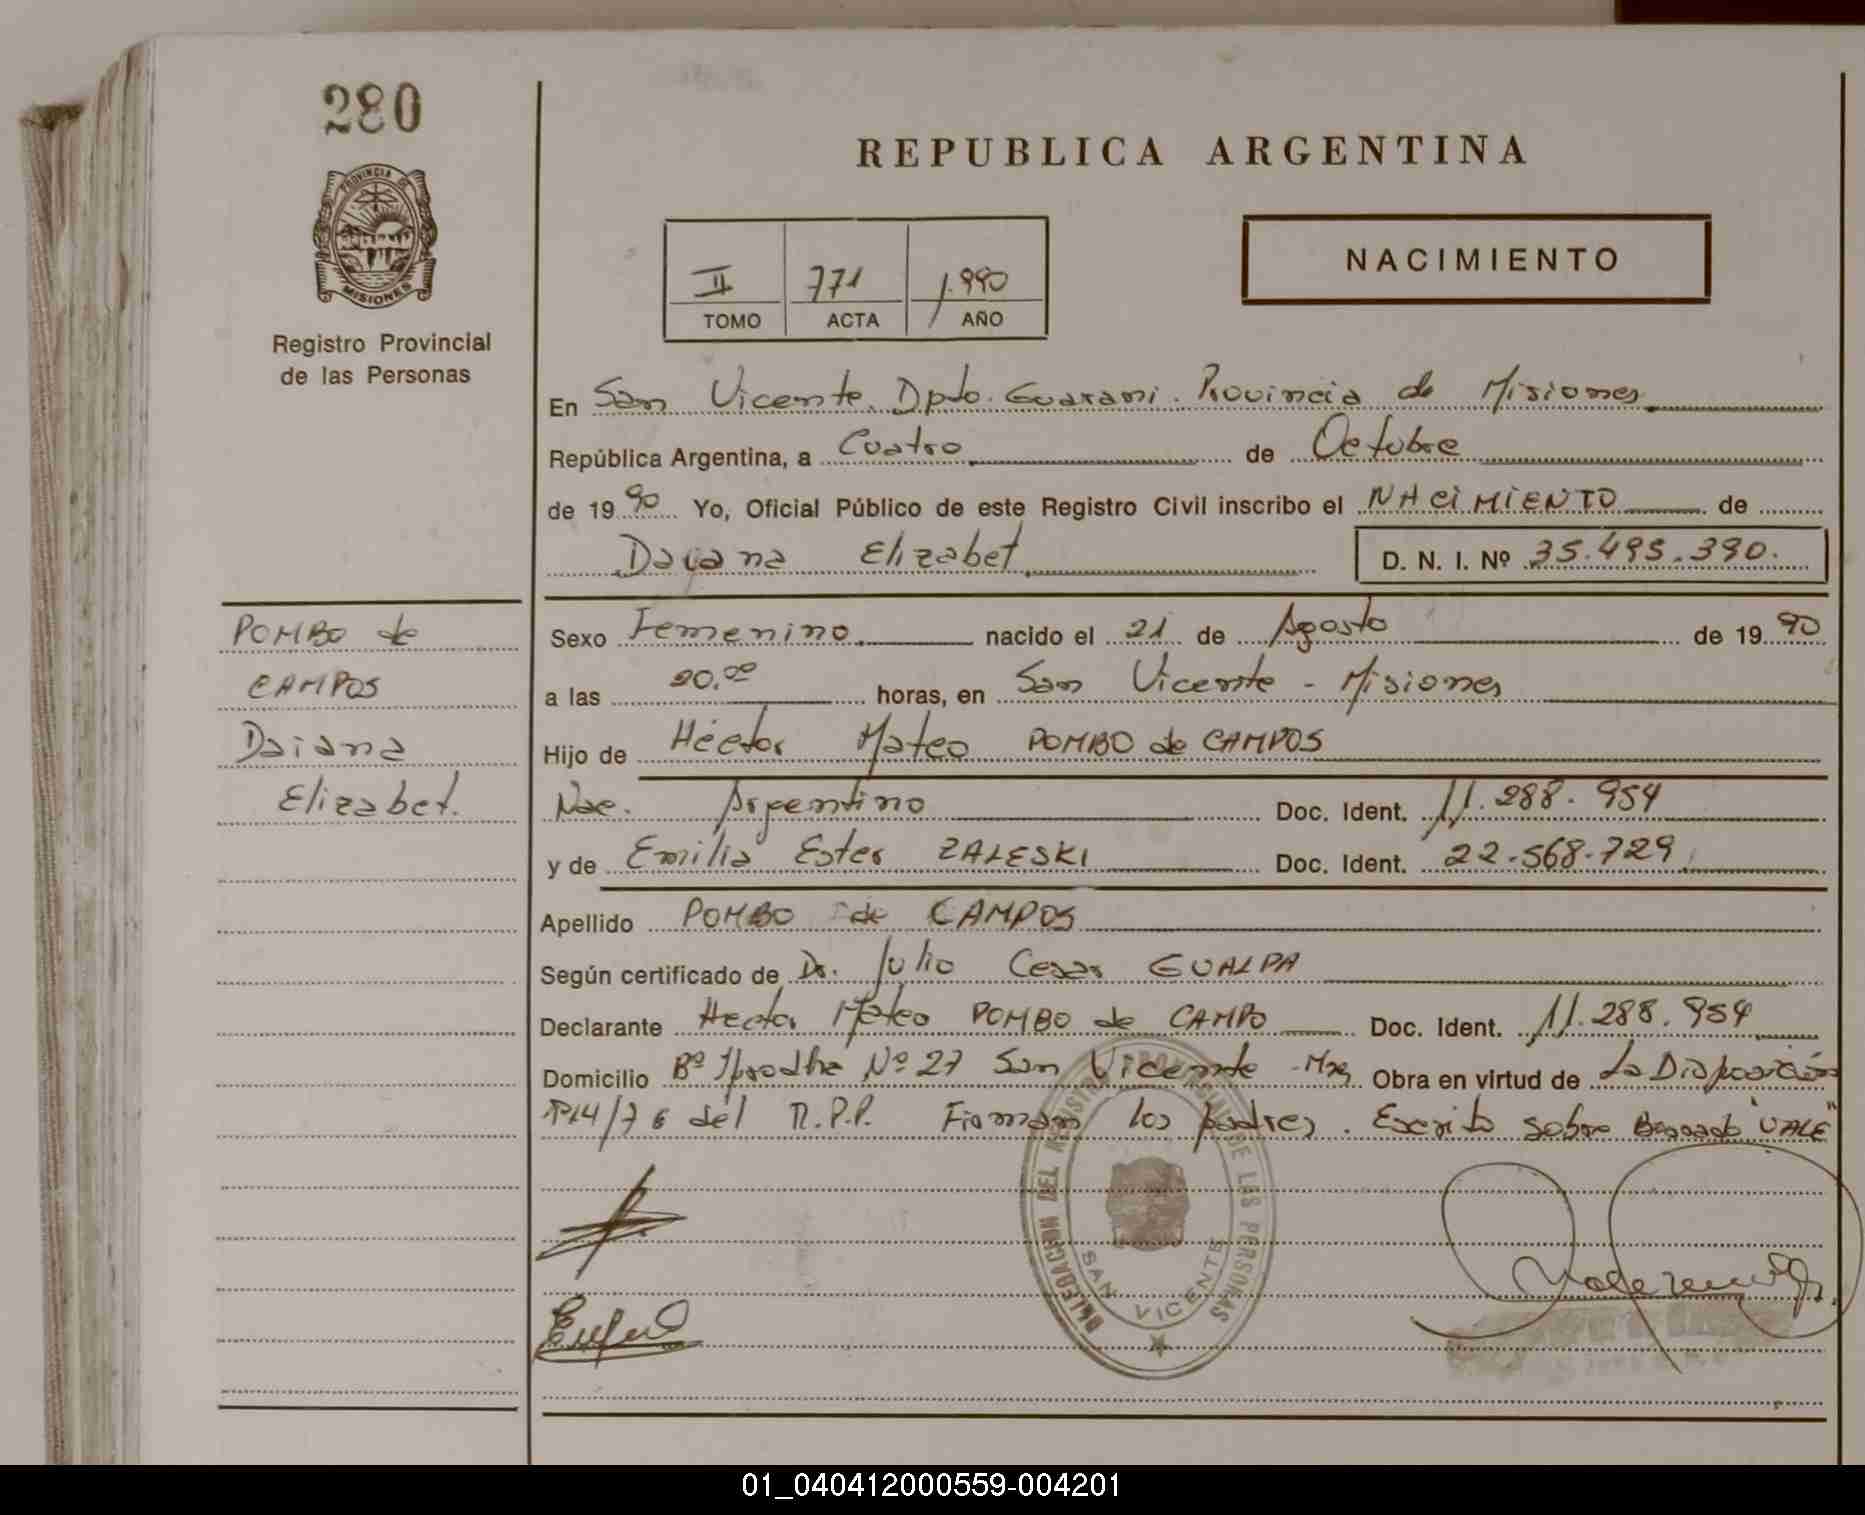 280
PROVINCIA DE
MISIONES
Registro Provincial
de las Personas
REPUBLICA ARGENTINA
II 771 1.990
TOMO ACTA AÑO
NACIMIENTO
En San Vicente. Dpto. Guarani. Provincia de Misiones
República Argentina, a Cuatro de Octubre
de 1990 Yo, Oficial Público de este Registro Civil inscribo el NACIMIENTO de
Daiana Elizabet D. N. I. Nº 35.495.390.
POMBO de
CAMPOS
Daiana
Elizabet.
Sexo Femenino nacido el 21 de Agosto de 1990
a las 20,00 horas, en San Vicente - Misiones
Hijo de Héctor Mateo POMBO de CAMPOS
Nac. Argentino Doc. Ident. 11.288.954
y de Emilia Ester ZALESKI Doc. Ident. 22.568.729
Apellido POMBO de CAMPOS
Según certificado de Dr. Julio Cesar GUALPA
Declarante Hector Mateo POMBO de CAMPO Doc. Ident. 11.288.954
Domicilio Bº Nº 27 San Vicente - Mnes Obra en virtud de La Disposición
Nº14/76 del R.P.P. Firman los padres. Escrito sobre Borrado "VALE"
DELEGACION DEL REGISTRO PROVINCIAL DE LAS PERSONAS
SAN VICENTE
01_040412000559-004201